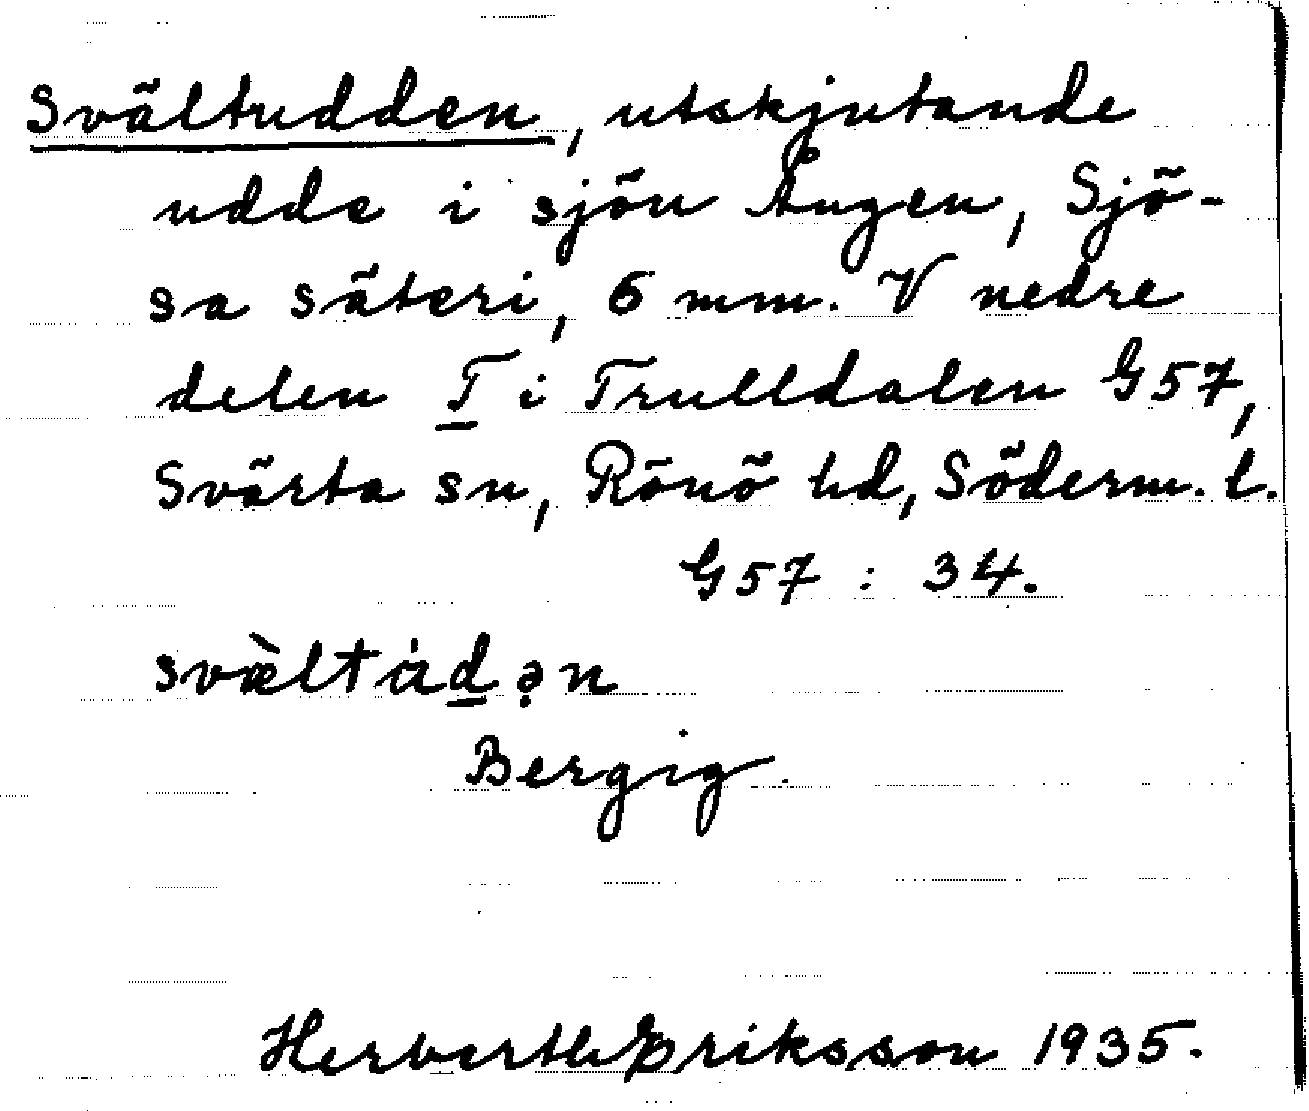 Svältudden, utskjutande
udde i sjön Ången, Sjö-
sa säteri, 6 mm. V nedre
delen T i Trulldalen G57,
Svärta sn, Rönö hd, Söderm. l.
G57 : 34.
svæ̀ltȧdə̣n
Bergig
Herbert Eriksson 1935.